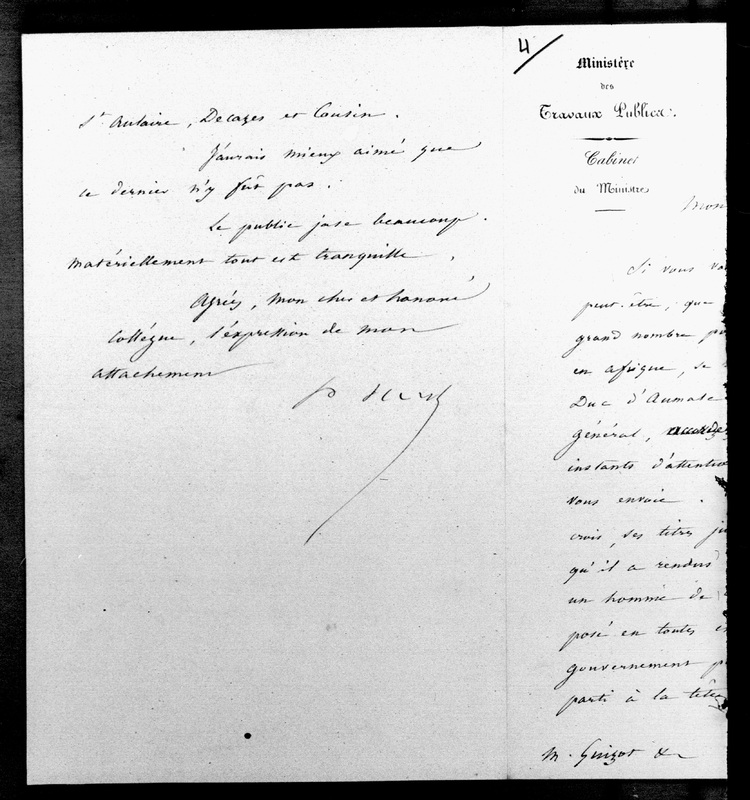 St Aulaire, Decazes et Cousin.
J'aurais mieux aimé que
ce dernier n'y fût pas.
Le public jase beaucoup.
matériellement tout est tranquille.
Agréez, mon cher et honoré
Collégue, l'expression de mon
attachement
4/
Ministère
des
Travaux Publics.
Cabinet
du Ministre
Mon
Si vous
peut-être, que
grand nombre
en afrique, se
Duc d'Aumale
général,
instants d'attention
vous envoie.
crois, ses titres
qu'il a rendus
un homme de
posé en toutes
gouvernement
parti à la tête
M. Guizot &c